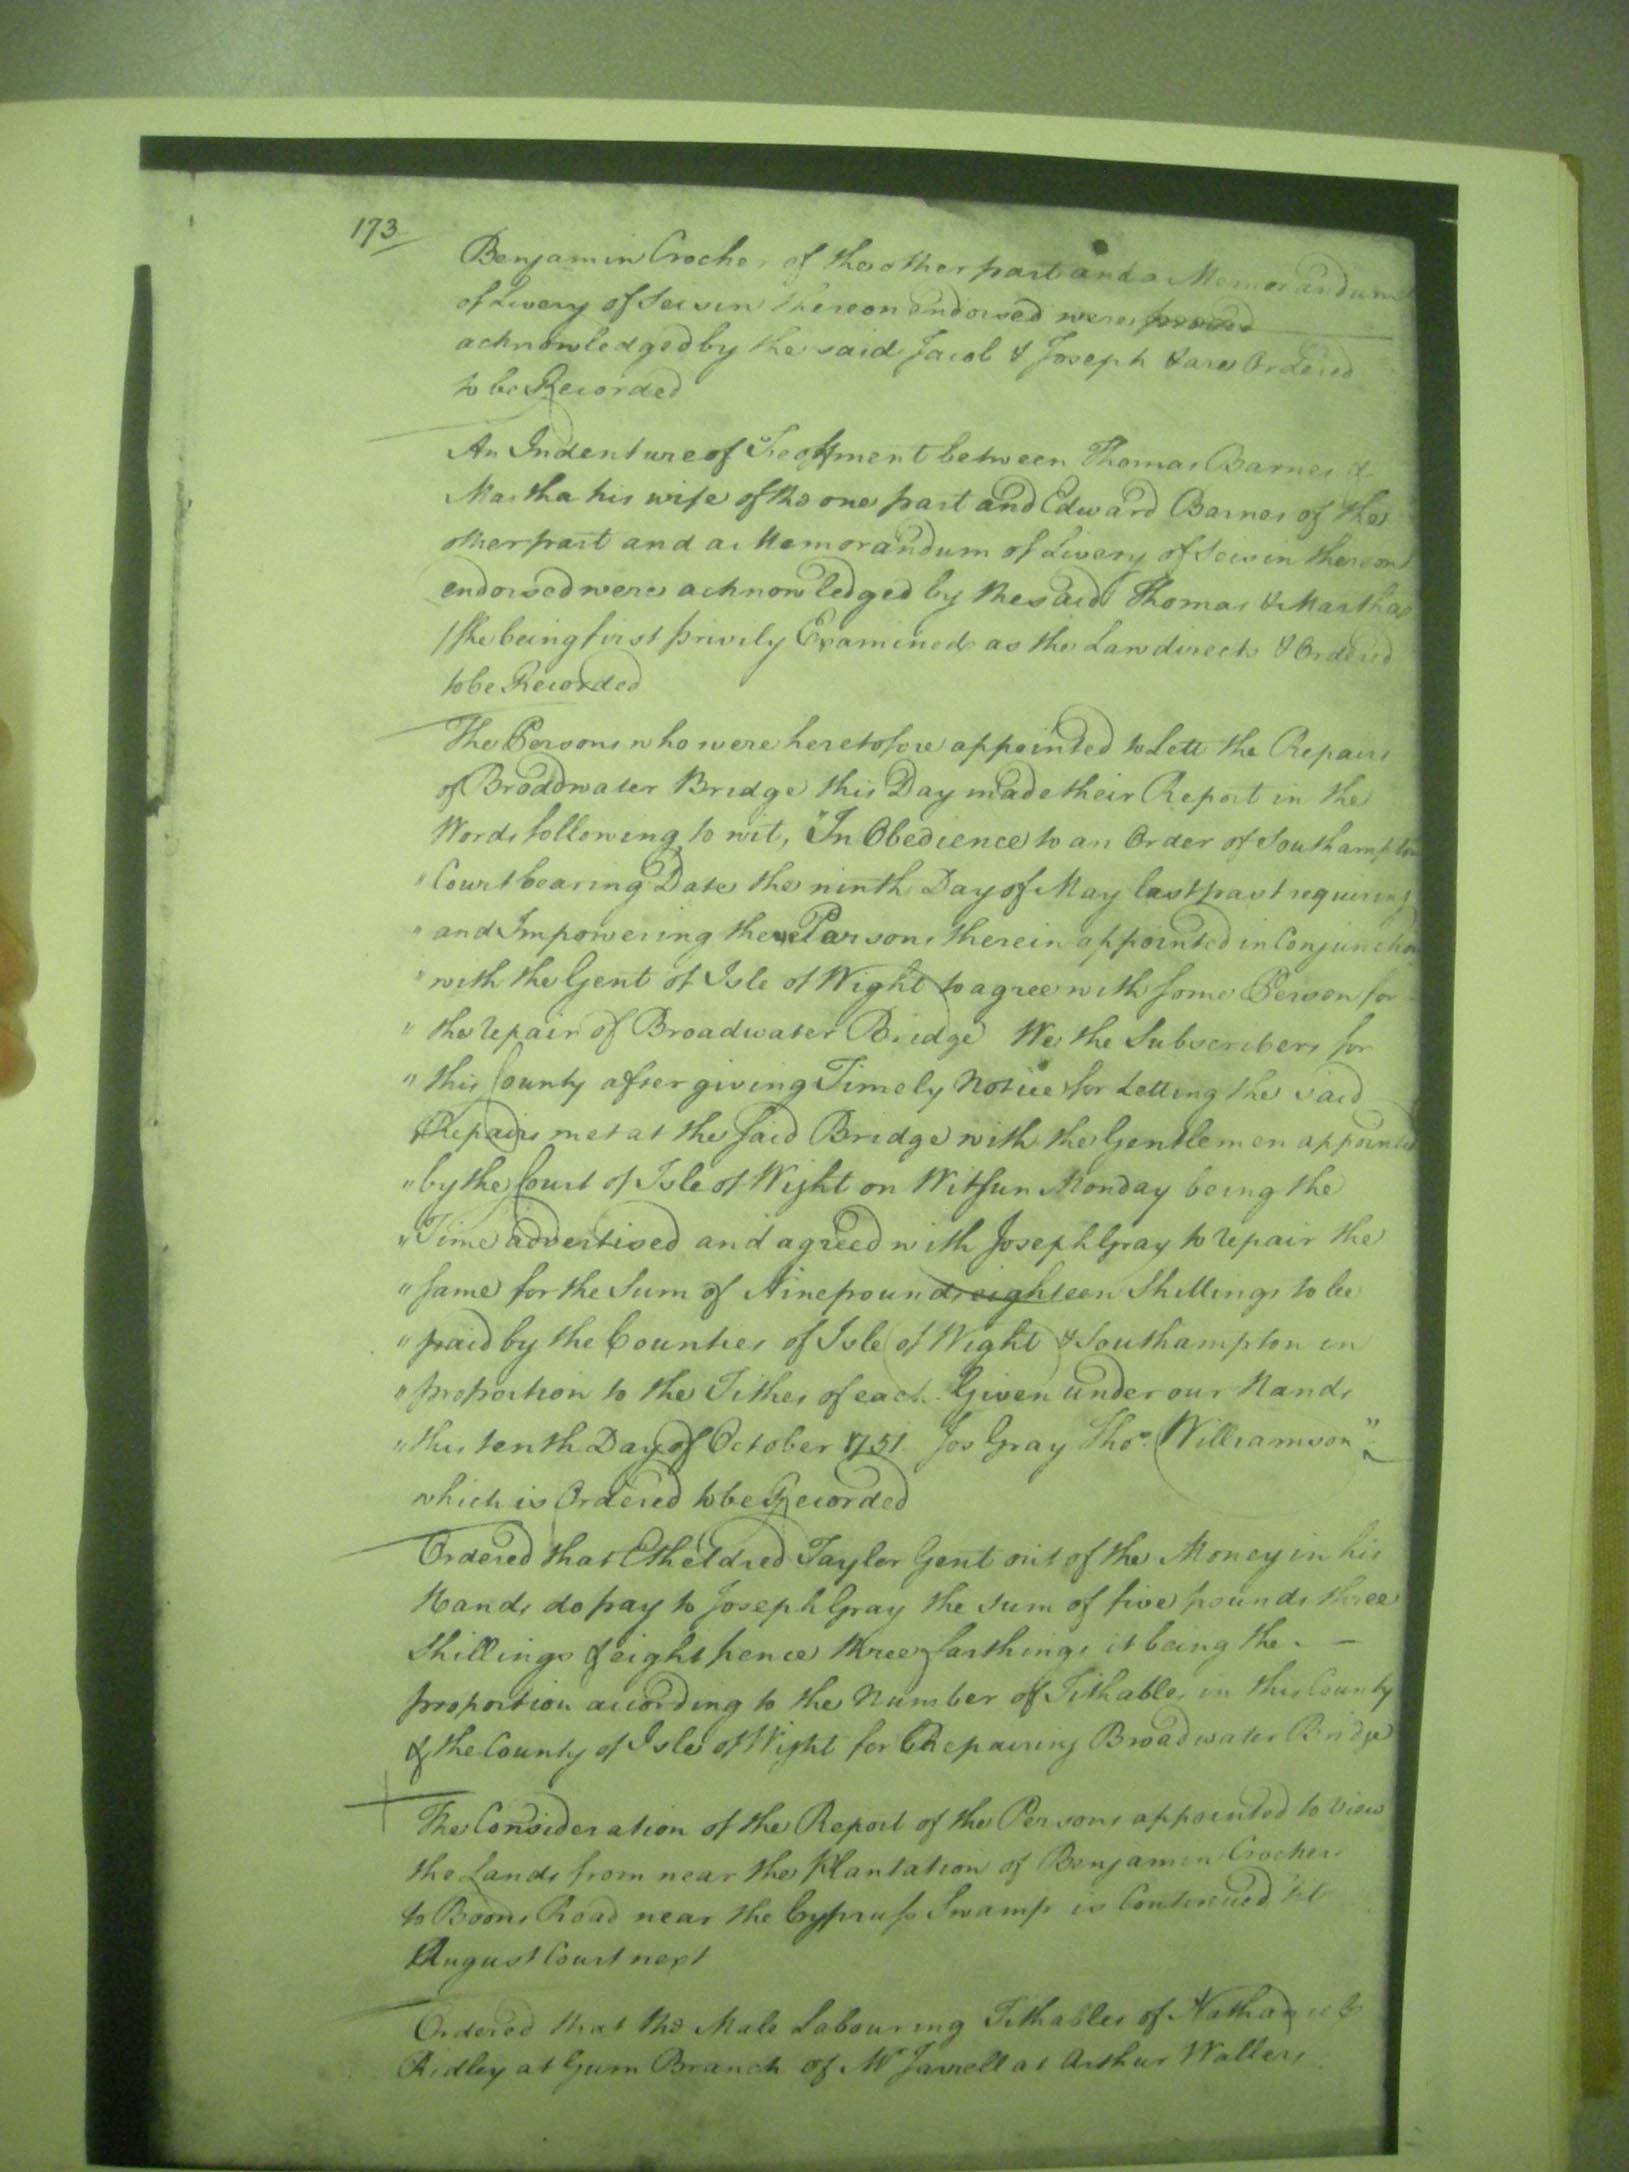 173
Benjamin Crocker of the other part and a Memorandum
of Livery of Seisin thereon endorsed were proved
acknowledged by the said Jacob & Joseph & are Ordered
to be Recorded
An Indenture of Feoffment between Thomas Barnes &
Martha his wife of the one part and Edward Barnes of the
other part and a Memorandum of Livery of Seisin thereon
endorsed were acknowledged by the said Thomas & Martha
/she being first privily Examined as the Law directs & Ordered
to be Recorded
The Persons who were heretofore appointed to Lett the Repairs
of Broadwater Bridge this Day made their Report in the
Words following to wit, "In Obedience to an Order of Southampton
" Court bearing Date the ninth Day of May last past requiring
" and Impowering the Persons therein appointed in Conjunction
" with the Gent of Isle of Wight to agree with some Person for
" the repair of Broadwater Bridge We the Subscribers for
" this County after giving Timely Notice for Letting the said
Repairs met at the said Bridge with the Gentlemen appointed
" by the Court of Isle of Wight on Witsun Monday being the
" Time advertised and agreed with Joseph Gray to repair the
" same for the Sum of Nine pounds eighteen Shillings to be
" paid by the Counties of Isle of Wight & Southampton in
" proportion to the Tithes of each Given under our Hands
" this tenth Day of October 1751. Jos Gray Thos. Williamson"
which is Ordered to be Recorded
Ordered that Etheldred Taylor Gent out of the Money in his
Hands do pay to Joseph Gray the sum of five pounds three
Shillings & eight pence three farthings it being the
proportion according to the Number of Tithables in this County
& the County of Isle of Wight for Repairing Broadwater Bridge
The Consideration of the Report of the Persons appointed to View
the Lands from near the Plantation of Benjamin Crockers
to Boons Road near the Cypruss Swamp is Continued 'til
August Court next
Ordered that the Male Labouring Tithables of Nathaniel
Ridley at Gum Branch of Mr Jarrell at Arthur Wallers